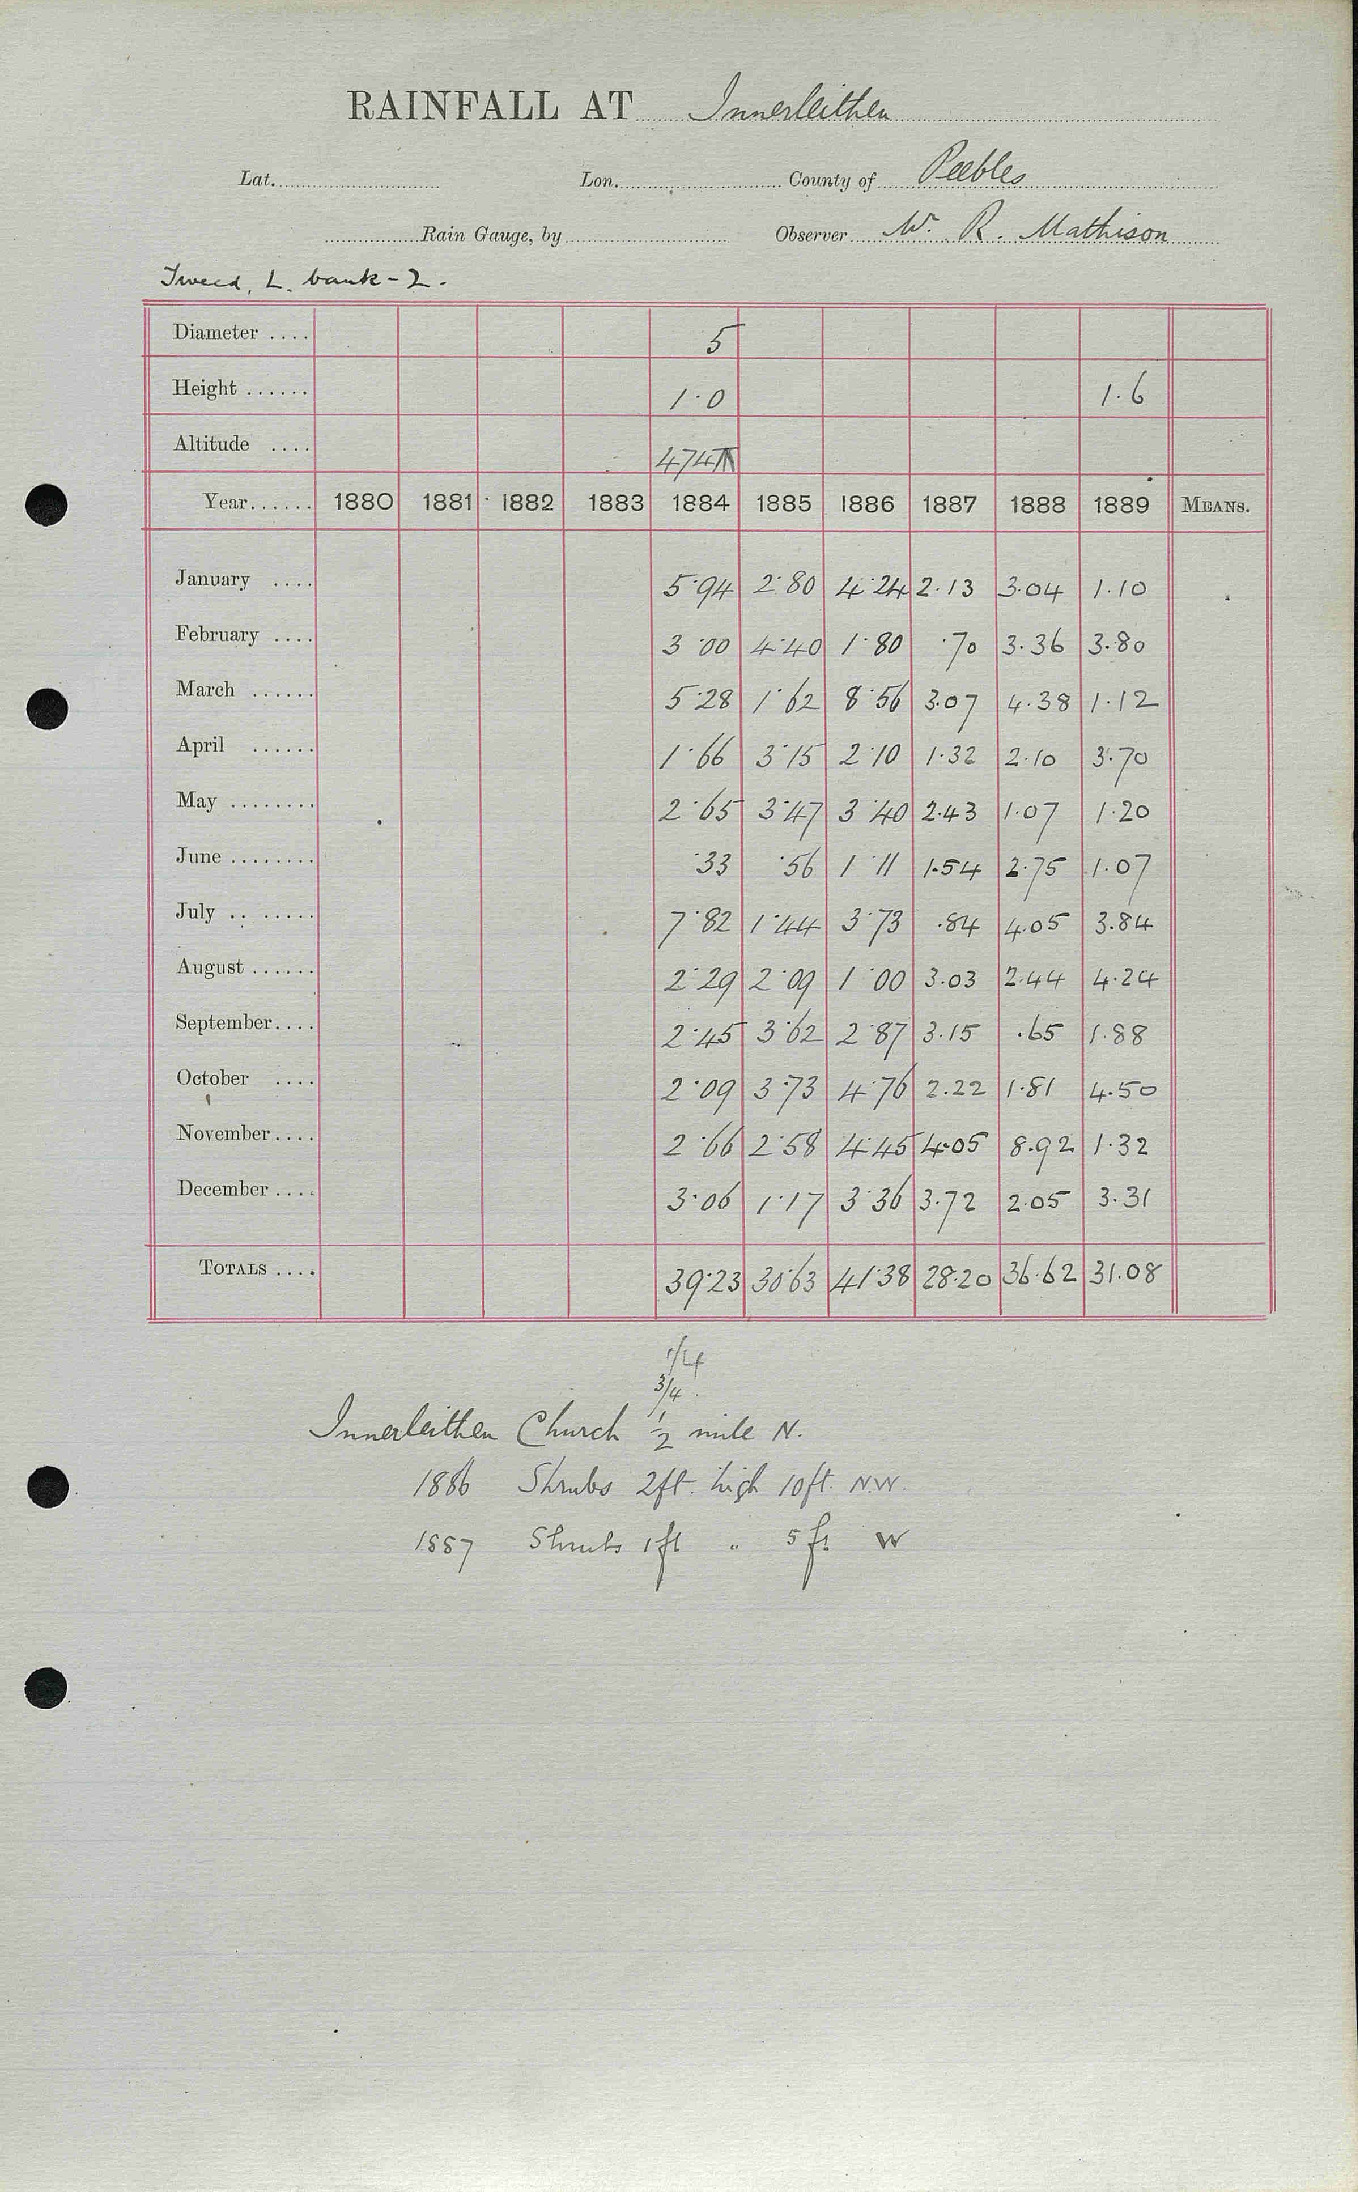 RAINFALL AT Innerleithen
Lat. Lon. County of Peebles
Rain Gauge, by Observer W. R. Mathison
Tweed, L. bank - 2.
Diameter .... 5
Height ...... 1.0 1.6
Altitude .... 474
Year...... 1880 1881 1882 1883 1884 1885 1886 1887 1888 1889 MEANS.
January .... 5.94 2.80 4.24 2.13 3.04 1.10
February .... 3.00 4.40 1.80 .70 3.36 3.80
March ...... 5.28 1.62 8.56 3.07 4.38 1.12
April ...... 1.66 3.15 2.10 1.32 2.10 3.70
May ........ 2.65 3.47 3.40 2.43 1.07 1.20
June ........ .33 .56 1.11 1.54 2.75 1.07
July .. ..... 7.82 1.44 3.73 .84 4.05 3.84
August ...... 2.29 2.09 1.00 3.03 2.44 4.24
September.... 2.45 3.62 2.87 3.15 .65 1.88
October .... 2.09 3.73 4.76 2.22 1.81 4.50
November.... 2.66 2.58 4.45 4.05 8.92 1.32
December .... 3.06 1.17 3.36 3.72 2.05 3.31
TOTALS .... 39.23 30.63 41.38 28.20 36.62 31.08
1/4
3/4.
Innerleithen Church 1/2 mile N.
1886 Shrubs 2ft. high 10ft. N.W.
1887 Shrubs 1ft " 5ft W